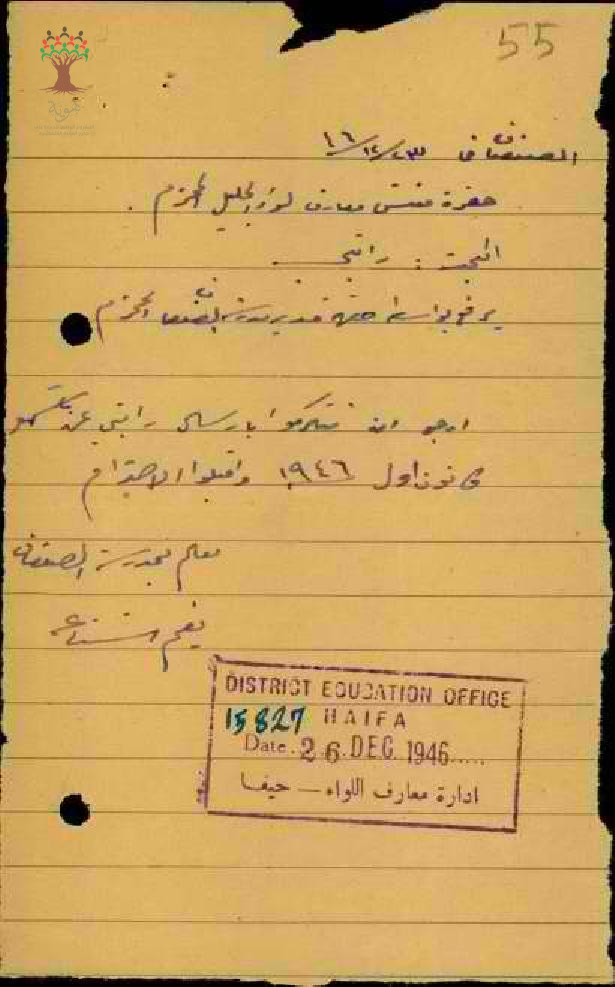 55
الصفصاف في ٢٣/١٢/٤٦
حضرة مفتش معارف لواء الجليل المحترم .
المبحث : راتبي
بواسطة حضرة مدير مدرسة الصفصاف المحترم
ارجو ان تتكرموا بارسال راتبي عن شهر
كانون اول ١٩٤٦ واقبلوا الاحترام
معلم بمدرسة الصفصاف
نعيم
DISTRICT EDUCATION OFFICE
15827 HAIFA
Date. 26. DEC. 1946.....
ادارة معارف اللواء — حيفا